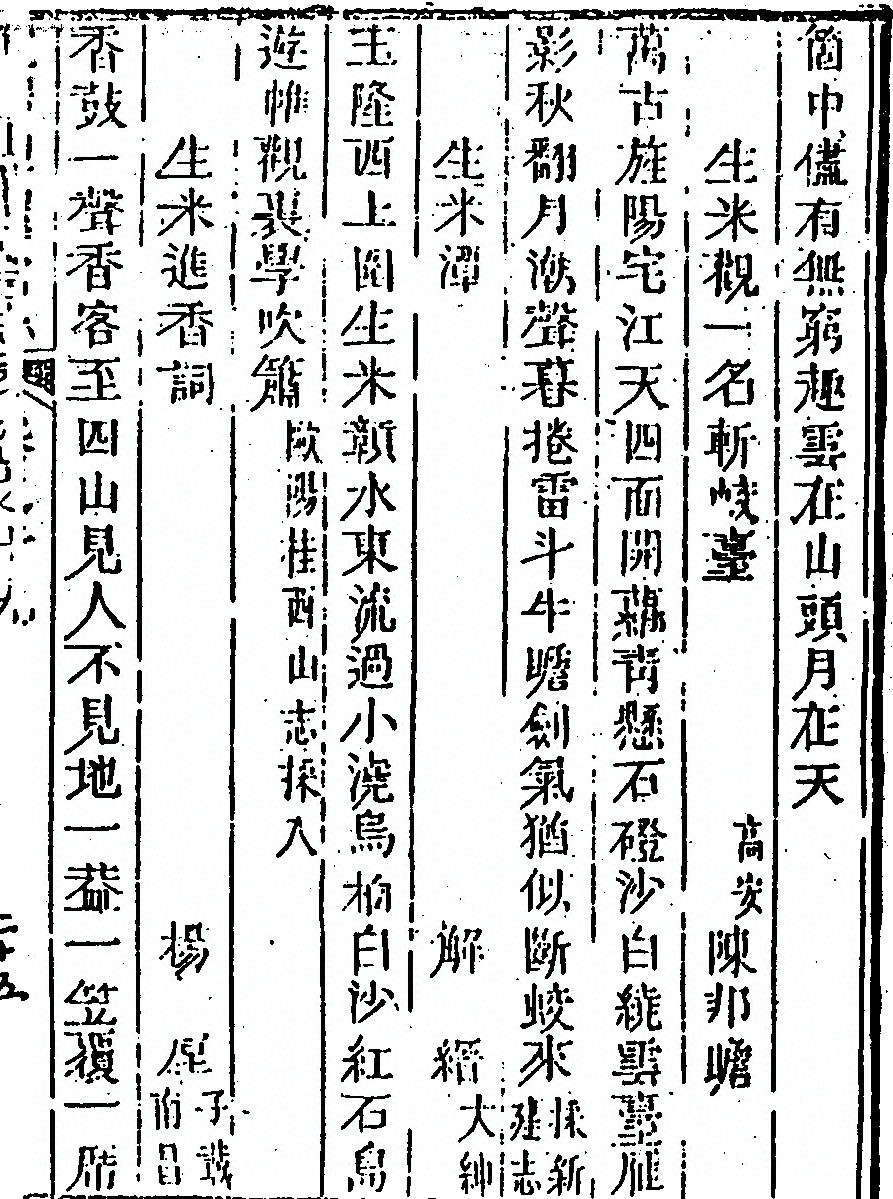 箇中儘有無窮趣雲在山頭月在天
生米觀一名斬蛟臺 高安陳邦瞻
萬古旌陽宅江天四面開蘿青懸石磴沙白繞雲臺雁
影秋翻月潮聲暮捲雷斗牛瞻劍氣猶似斷蛟來 採新建志
生米潭 解縉 大紳
玉隆西上圖生米贛水東流過小澆烏桕白沙紅石島
遊帷觀裏學吹簫 歐陽桂西山志採入
生米進香詞 楊 子載南昌
香鼓一聲香客至四山見人不見地一葢一笠覆一席
二十五